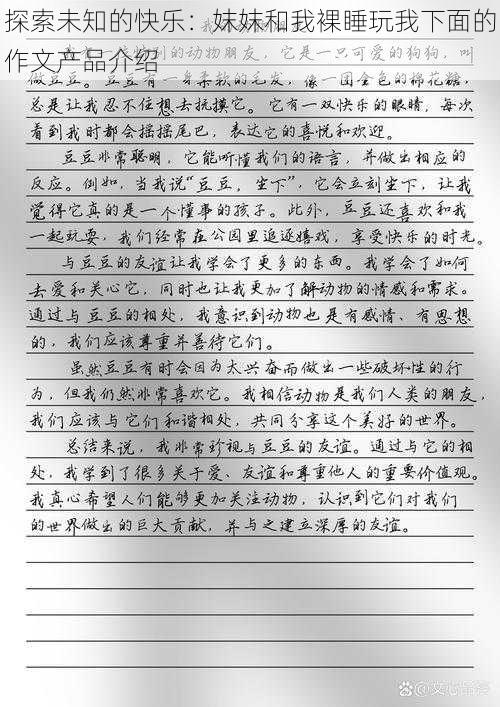 探索未知的快乐：妹妹和我裸睡玩我下面的
作文产品介绍
做豆豆。豆豆有一身柔软的毛发，像一团金色的棉花糖，
总是让我忍不住想去抚摸它。它有一双快乐的眼睛，每次
看到我时都会摇摇尾巴，表达它的喜悦和欢迎。
豆豆非常聪明，它能听懂我们的语言，并做出相应的
反应。例如，当我说“豆豆，坐下”，它会立刻坐下，让我
觉得它真的是一个懂事的孩子。此外，豆豆还喜欢和我
一起玩耍，我们经常在公园里追逐嬉戏，享受快乐的时光。
与豆豆的友谊让我学会了更多的东西。我学会了如何
去爱和关心它，同时也让我更加了解动物的情感和需求。
通过与豆豆的相处，我意识到动物也是有感情、有思想
的，我们应该尊重并善待它们。
虽然豆豆有时会因为太兴奋而做出一些破坏性的行
为，但我们然非常喜欢它。我相信动物是我们人类的朋友，
我们应该与它们和谐相处，共同分享这个美好的世界。
总结来说，我非常珍视与豆豆的友谊。通过与它的相
处，我学到了很多关于爱、友谊和尊重他人的重要价值观。
我真心希望人们能够更加关注动物，认识到它们对我们
的世界做出的巨大贡献，并与之建立深厚的友谊。